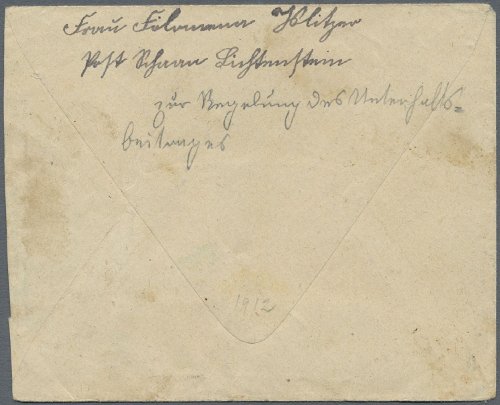 Frau Filomena
Post Schaan Lichtenstein
zur Regelung des Unterhalts-
beitrages
1912